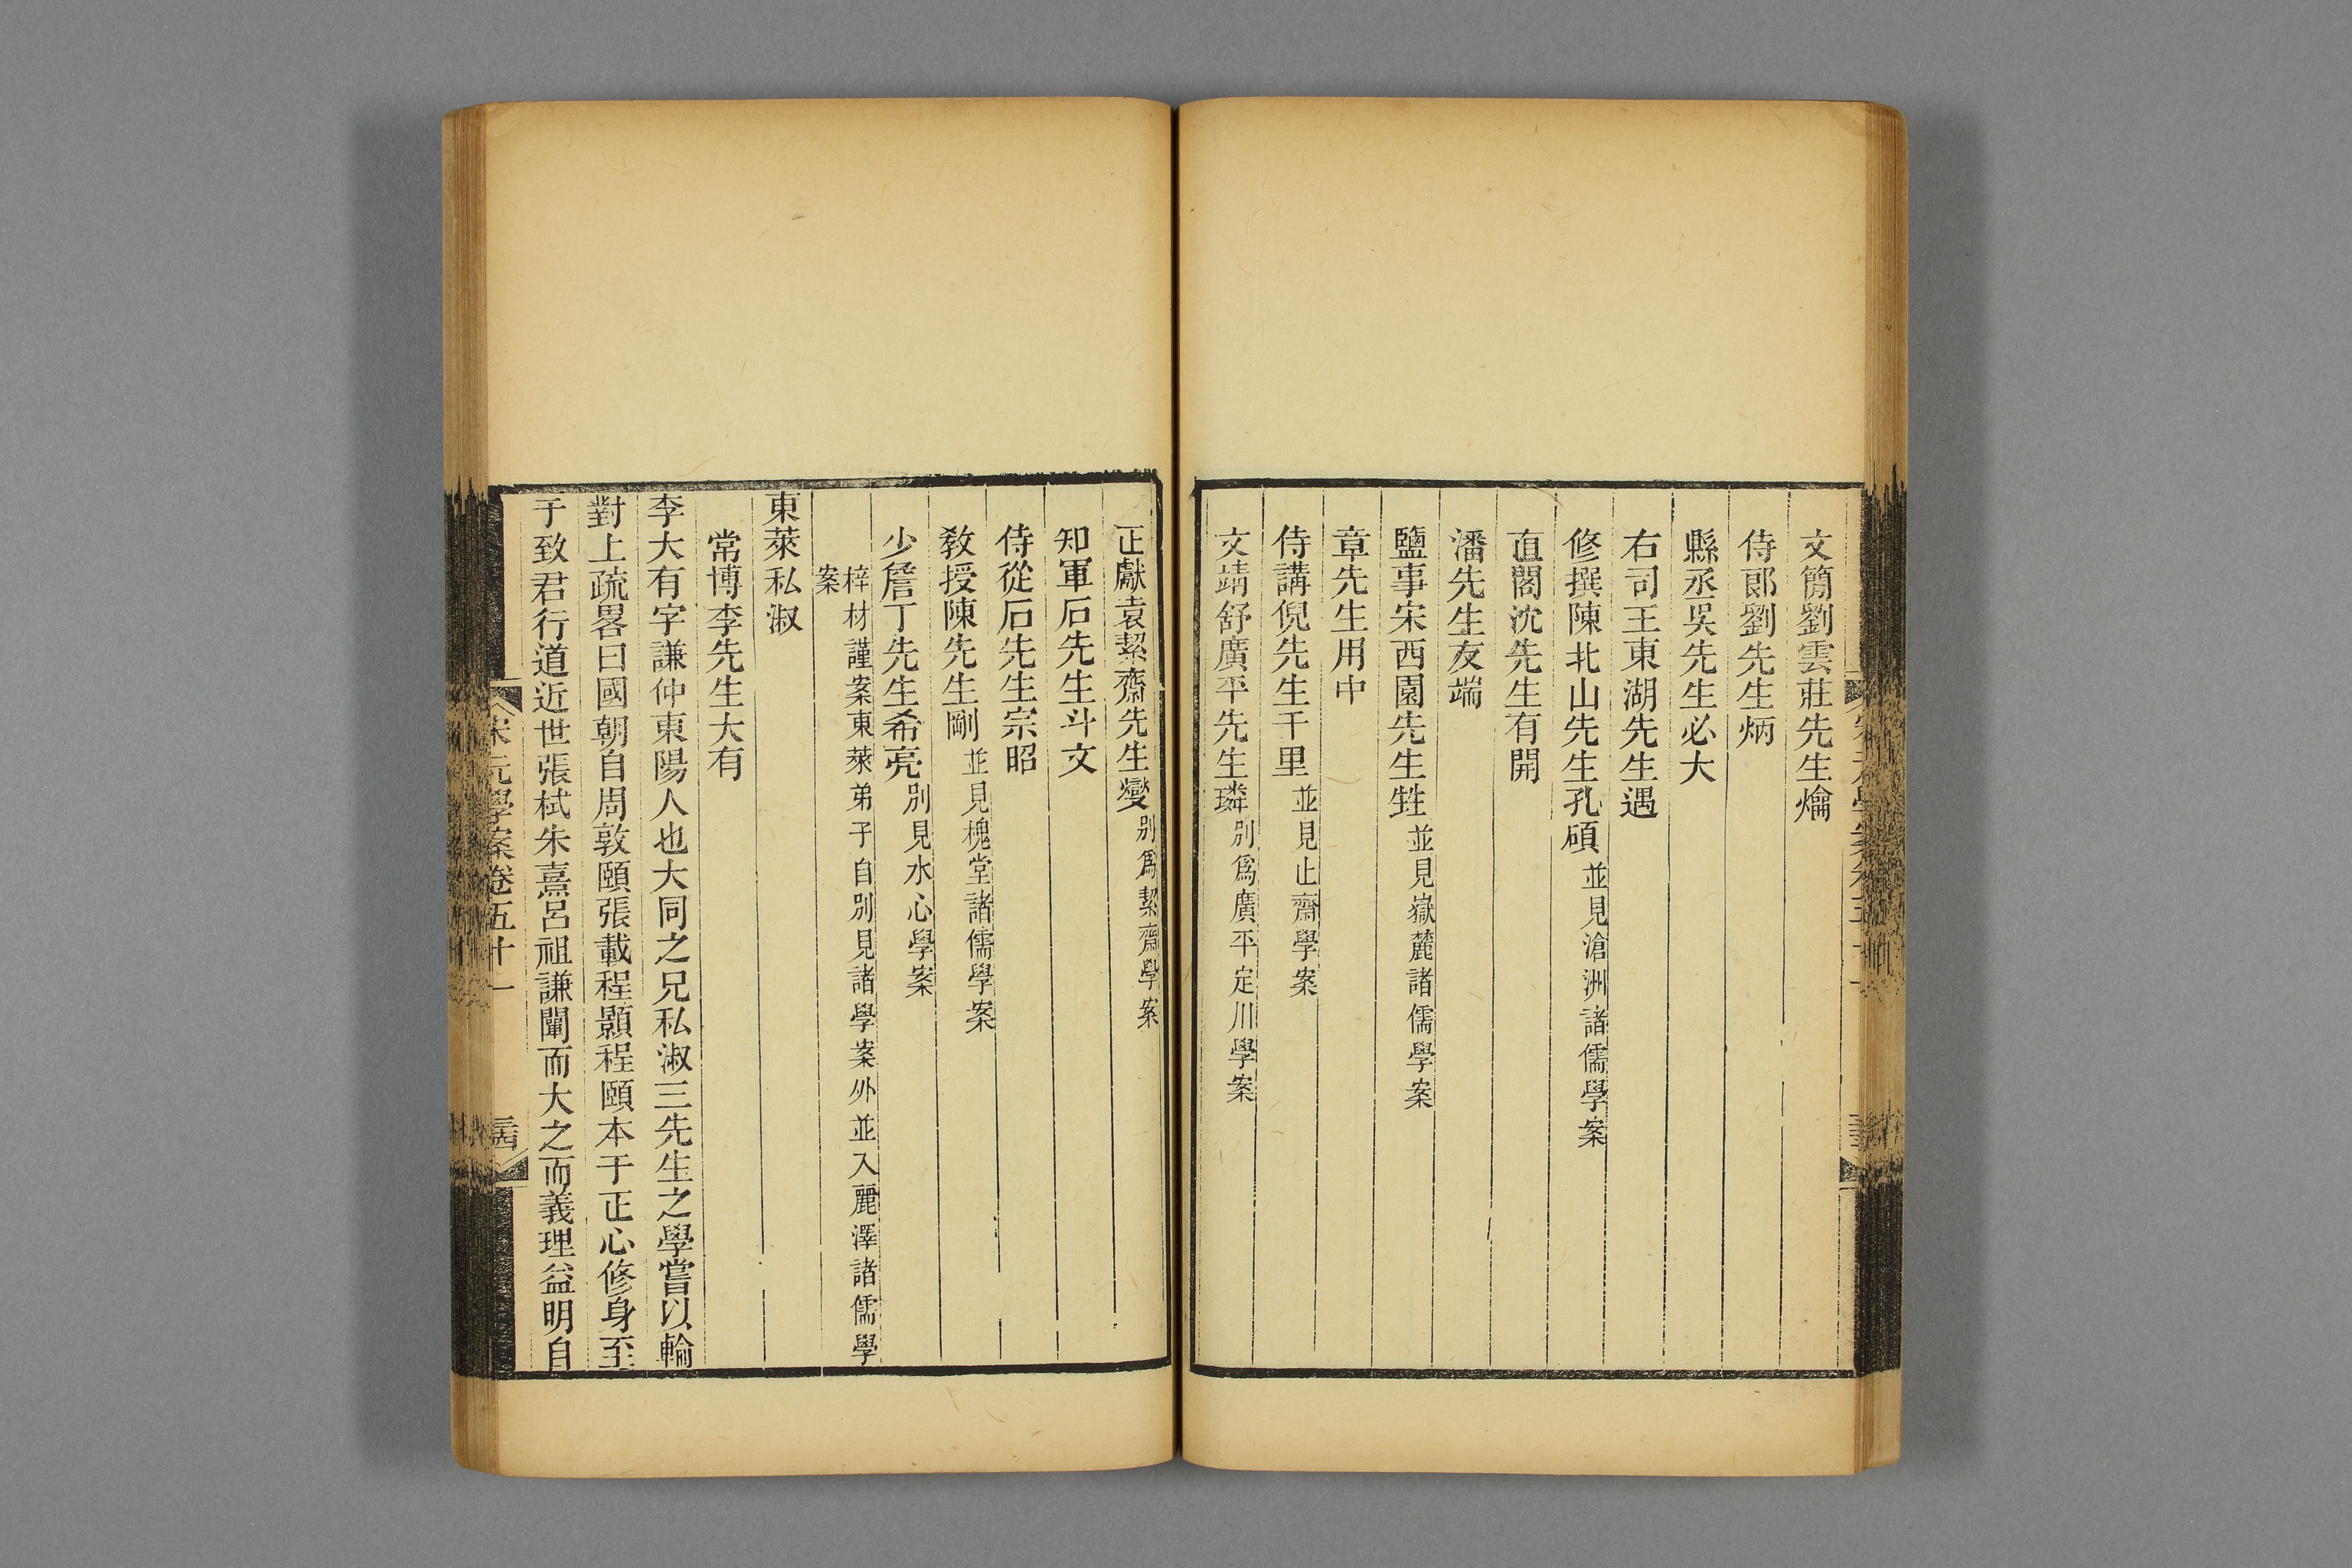 文簡劉雲莊先生爚
侍郎劉先生炳
縣丞吳先生必大
右司王東湖先生遇
修撰陳北山先生孔碩並見滄洲諸儒學案
直閣沈先生有開
潘先生友端
鹽事宋西園先生甡並見嶽麓諸儒學案
章先生用中
侍講倪先生千里並見止齋學案
文靖舒廣平先生璘別爲廣平定川學案
正獻袁絜齋先生燮別爲絜齋學案
知軍石先生斗文
侍從石先生宗昭
教授陳先生剛並見槐堂諸儒學案
少詹丁先生希亮別見水心學案
梓材謹案東萊弟子自別見諸學案外並入麗澤諸儒學
案
東萊私淑
常博李先生大有
李大有字謙仲東陽人也大同之兄私淑三先生之學嘗以輪
對上疏畧曰國朝自周敦頤張載程顥程頤本于正心修身至
于致君行道近世張栻朱熹呂祖謙闡而大之而義理益明自
宋元學案卷五十一